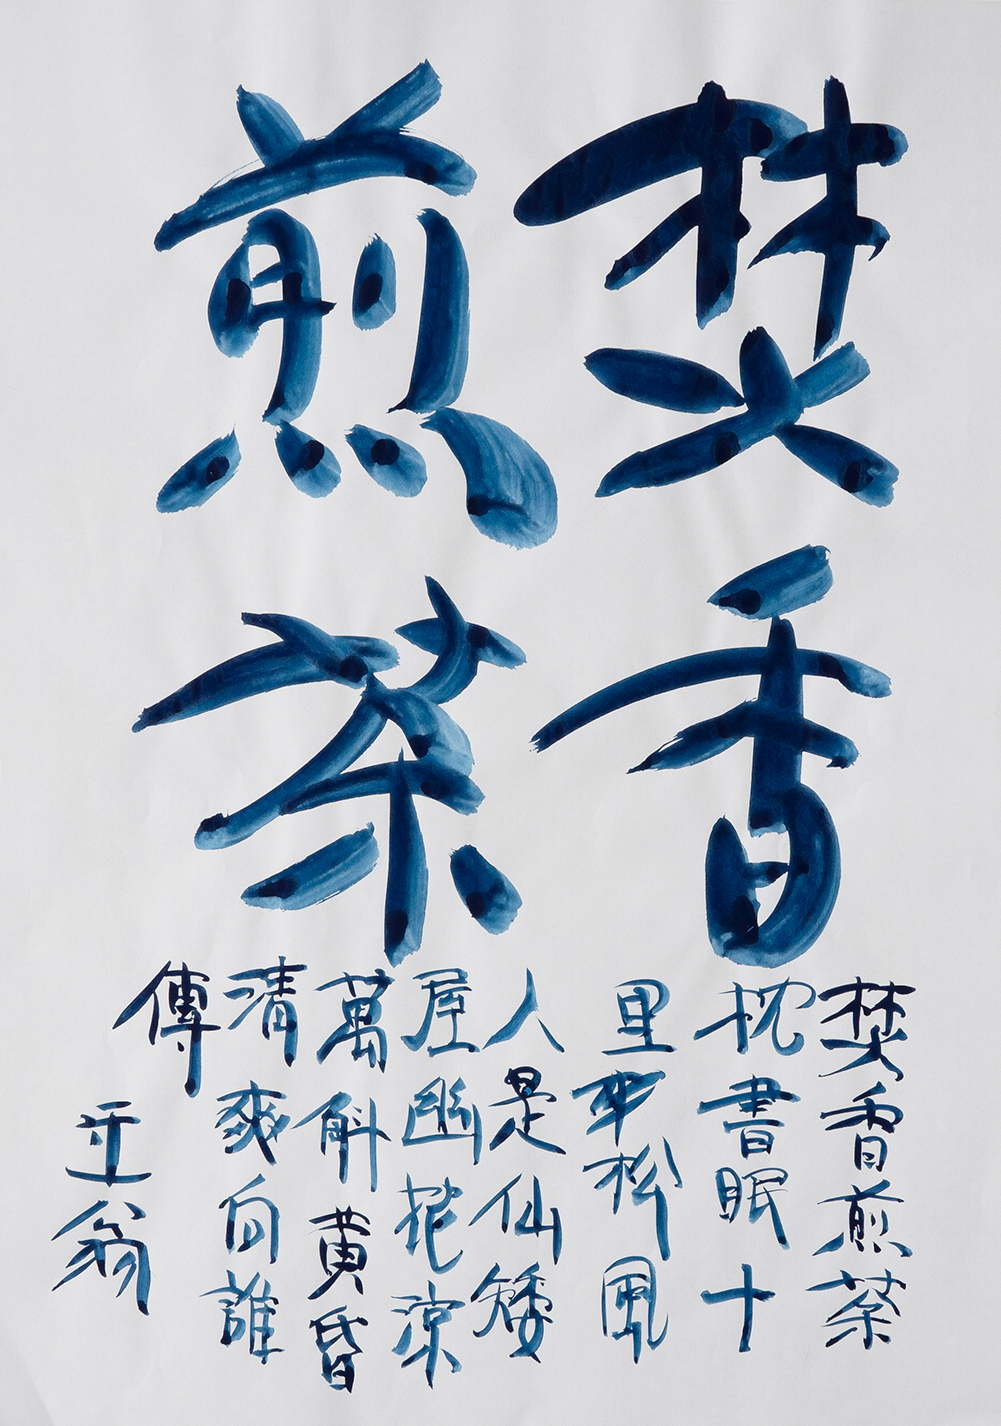 焚香
煎茶
焚香煎茶
枕書眠十
里松風
人是仙矮
屋幽花涼
萬斛黄昏
清爽向誰
傳
翁